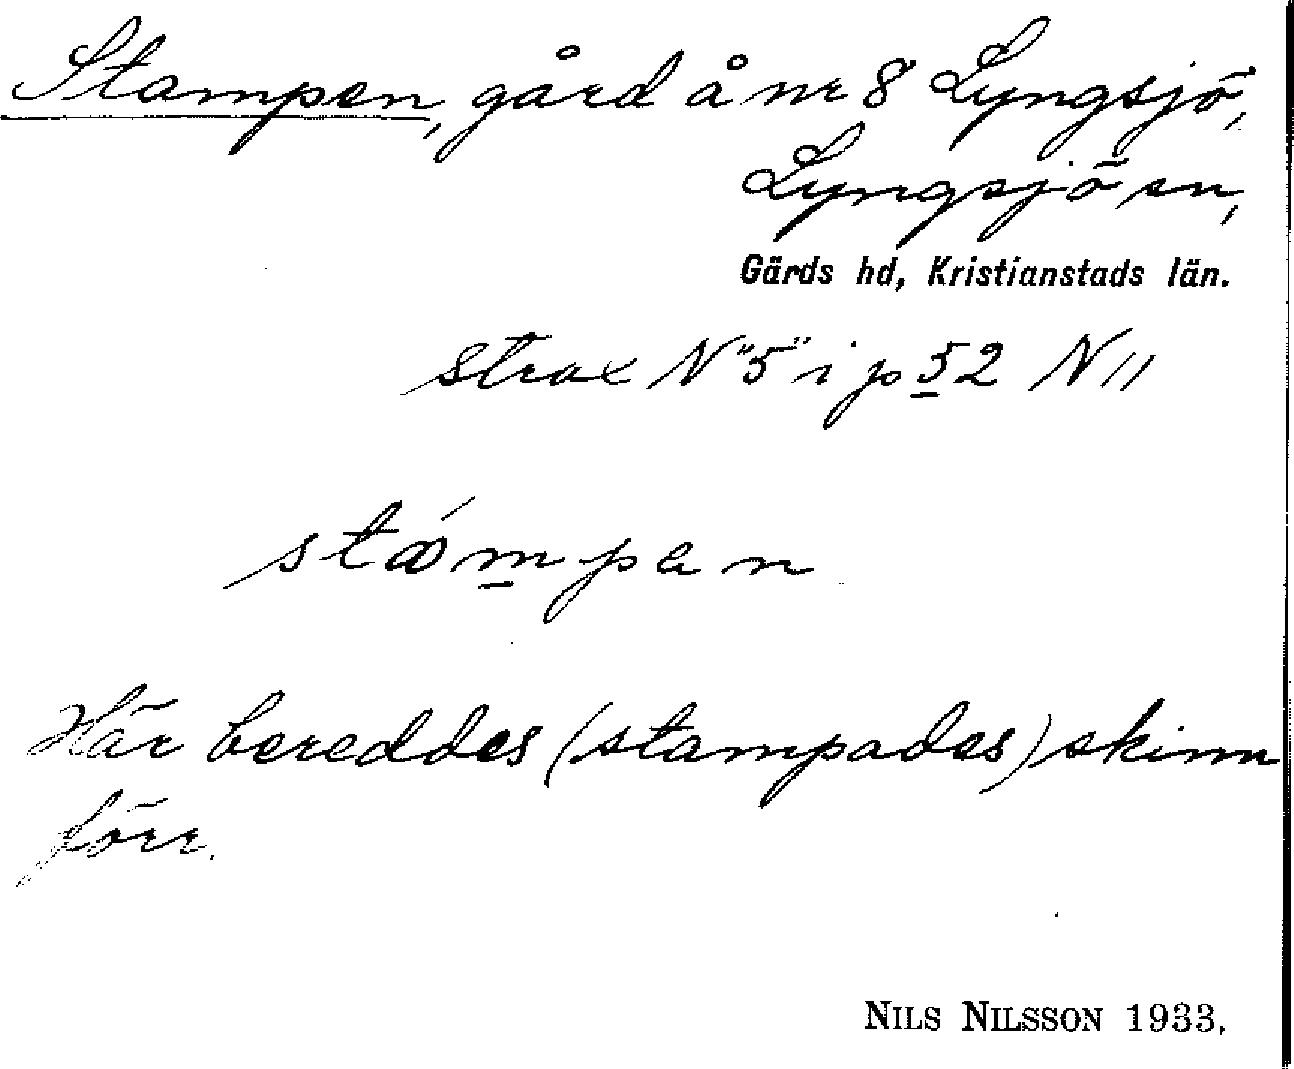 Stampen, gård å nr 8 Lyngsjö,
Lyngsjö sn,
Gärds hd, Kristianstads län.
strax N "5" i p 52 N //
stámpen
Här bereddes (stampades) skinn
förr.
NILS NILSSON 1933.